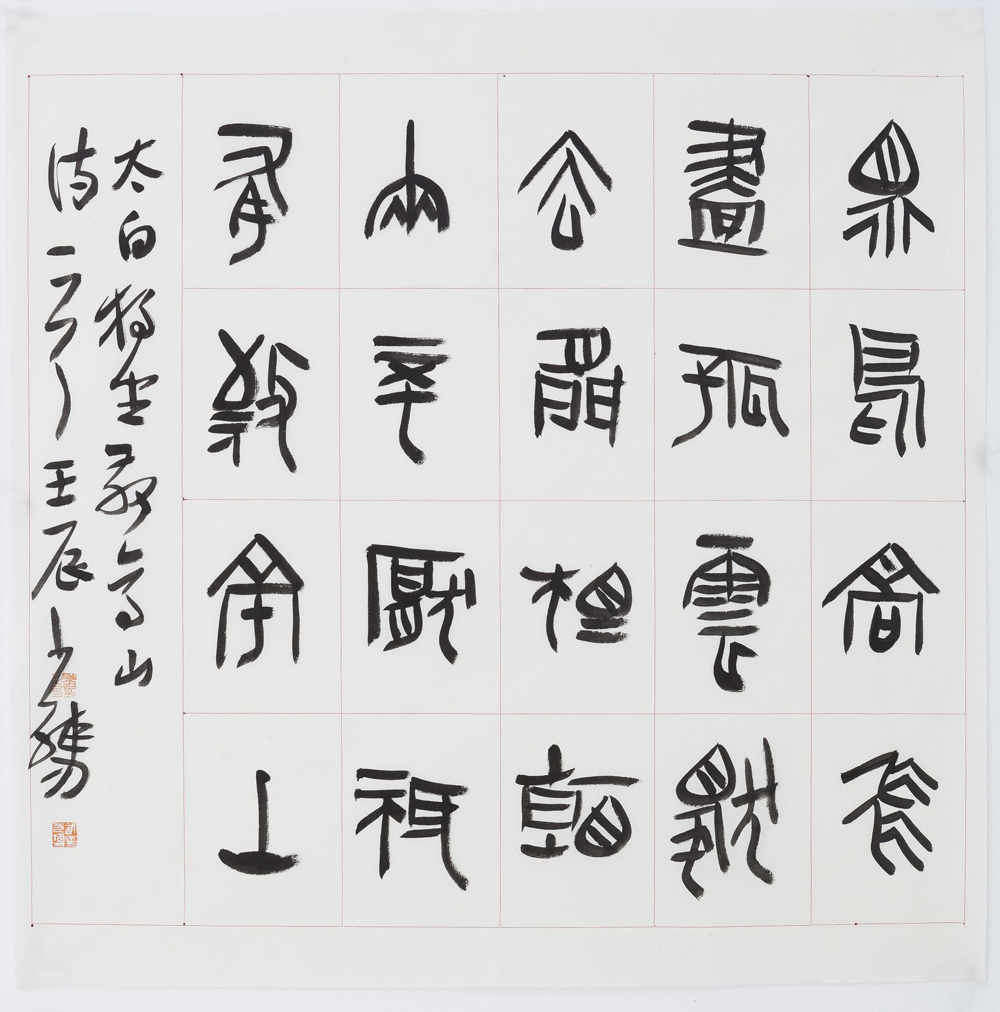 眾鳥高飛
盡孤雲獨
去閒相看
兩不厭祇
有敬亭山
太白獨坐敬亭山
詩一首壬辰少